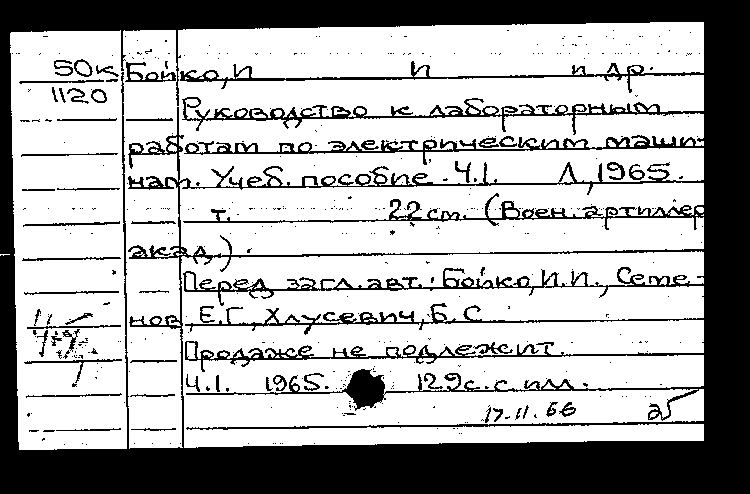 50к Бойко, И И и др.
1120
Руководство к лабораторным
работам по электрическим маши-
нам. Учеб. пособие. Ч.1. Л, 1965.
т. 22 см. (Воен. артиллер
акад.).
Перед загл. авт.: Бойко, И.И., Семе-
нов, Е.Г., Хлусевич, Б.С
Продаже не подлежит.
Ч.1. 1965. 129 с. с илл.
17.11.66